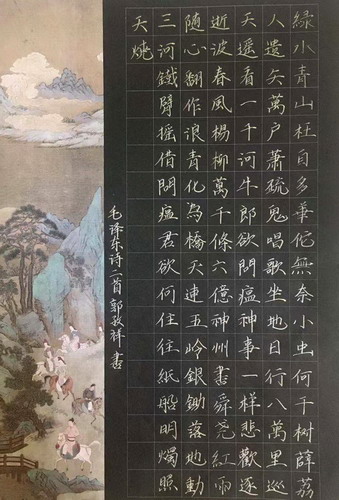 綠小青山枉自多華佗無奈小虫何千樹薜荔
人遺矢萬户蕭疏鬼唱歌坐地日行八萬里巡
天遥看一千河牛郎欲問瘟神事一样悲歡逐
逝波春風楊柳萬千條六億神州書舜尧紅雨
随心翻作浪青化為橋天連五岭銀鋤落地動
三河鐵臂摇借問瘟君欲何住往紙船明燭照
天燒
毛泽东诗二首 郭孜祥 書